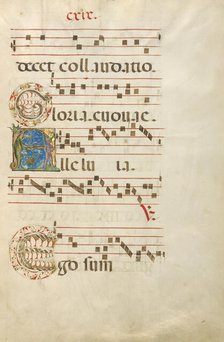 cxix.
decet collaudatio
Gloria. euouae.
Alle lu ia.
Ego sum